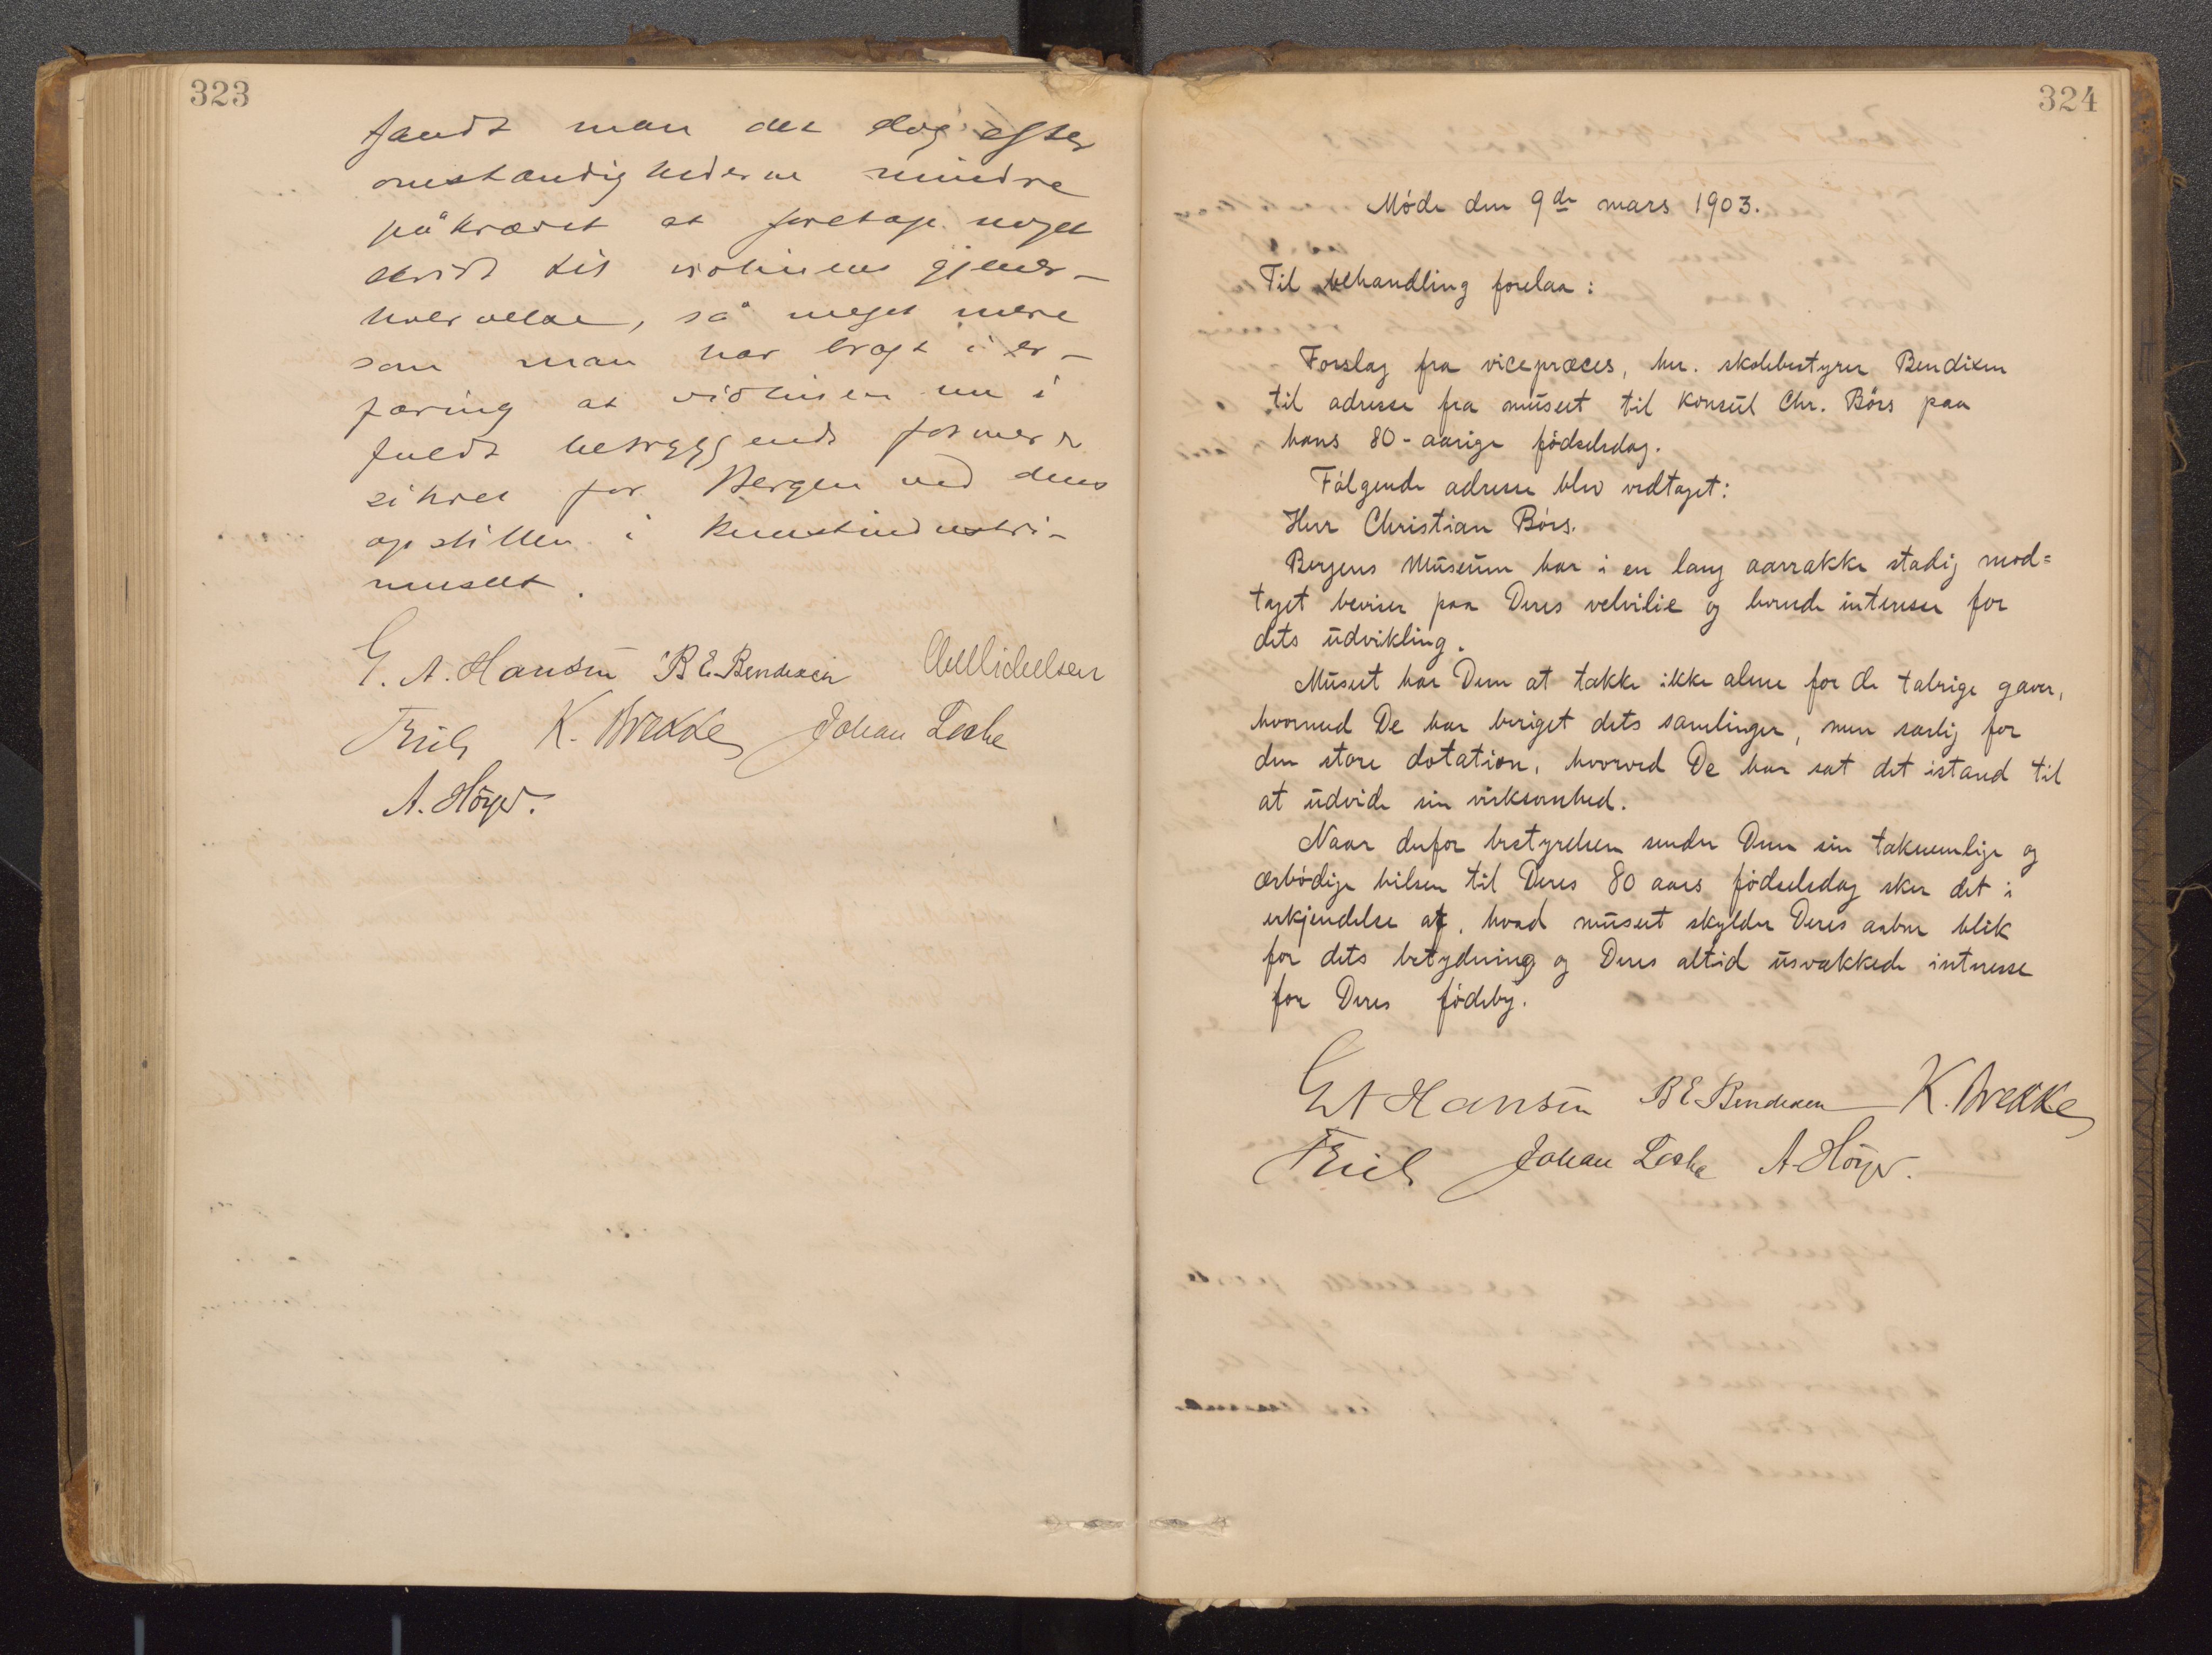 323
fandt man det dog efter
omstændighederne mindre
påkrævet at foretage noget
skridt til violinens gjener-
hvervelse, så meget mere
som man har bragt i er-
faring at violinen nu i
fuldt betryggende former er
sikret for Bergen ved dens
opstillen i Kunstindustri-
museet.
G. A. Hansen B E Bendixen Chr Michelsen
Friele K. Brekke Johan Lothe
A. Höyer.
324
Møde den 9de mars 1903.
Til behandling forelaa:
Forslag fra vicepræces, hr. skolebestyrer Bendixen
til adresse fra museet til konsul Chr. Börs paa
hans 80-aarige födselsdag.
Fölgende adresse blev vedtaget:
Herr Christian Börs.
Bergens Museum har i en lang aarrække stadig mod=
taget beviser paa Deres velvilie og levende interesse for
dets udvikling.
Museet har Dem at takke ikke alene for de talrige gaver,
hvormed De har beriget dets samlinger, men særlig for
den store dotation, hvorved De har sat det istand til
at udvide sin virksomhed.
Naar derfor bestyrelsen sender Dem sin taknemlige og
ærbödige hilsen til Deres 80 aars födselsdag sker det i
erkjendelse af, hvad museet skylder Deres aabne blik
for dets betydning og Deres altid usvækkede interesse
for Deres födeby.
G A Hansen B E Bendixen K. Brekke
Friele Johan Lothe A. Höyer.